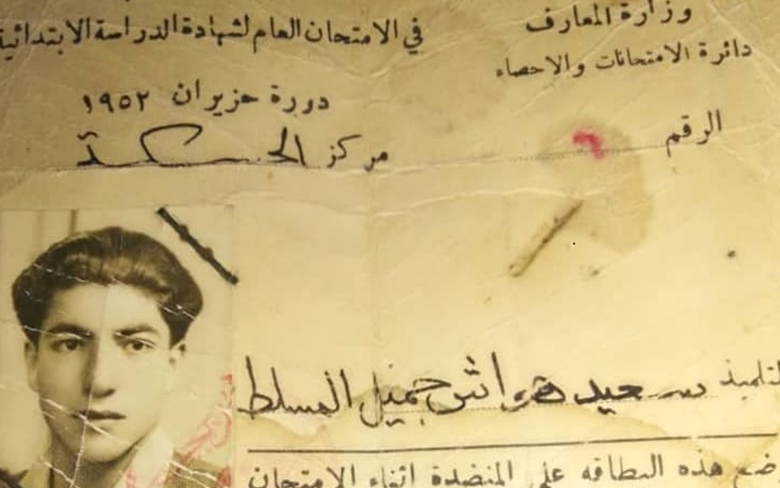 وزارة المعارف
دائرة الامتحانات والاحصاء
في الامتحان العام لشهادة الدراسة الابتدائية
دورة حزيران ١٩٥٢
مركز الحسكة
الرقم ٦
التلميذ سعيد هواش جميل المسلط
ضع هذه البطاقه على المنضدة اثناء الامتحان